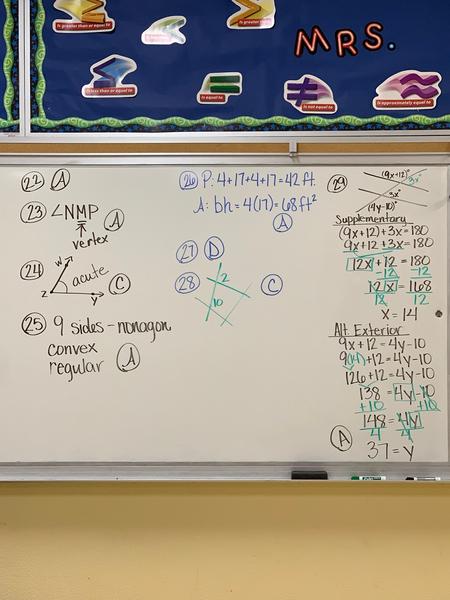 MRS.
Is greater than or equal to
Is greater than
Is less than or equal to
Is equal to
Is not equal to
Is approximately equal to
22 A
23 ∠NMP A
vertex
24 W acute
Z Y C
25 9 sides - nonagon
convex
regular A
26 P: 4+17+4+17=42 ft.
A: bh = 4(17) = 68 ft²
A
27 D
28 2 C
10
29 (9x+12)°
3x°
3x°
(4y-10)°
Supplementary
(9x+12)+3x=180
9x+12+3x=180
12x+12=180
-12 -12
12x=168
12 12
x = 14
Alt. Exterior
9x+12=4y-10
9(14)+12=4y-10
126+12=4y-10
138=4y-10
+10 +10
148=4y
4 4
A 37=y